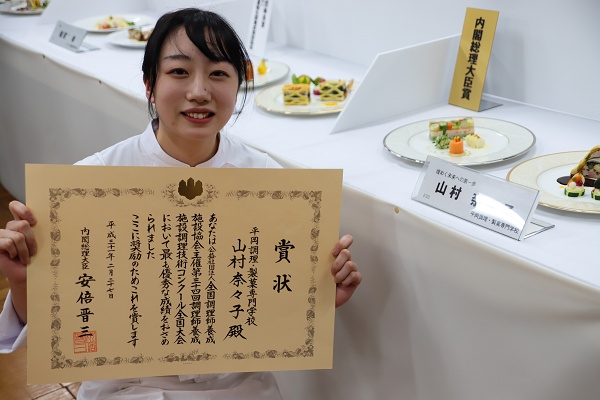 賞状
平岡調理・製菓専門学校
山村奈々子殿
あなたは公益社団法人全国調理師養成
施設協会主催第三十四回調理師養成
施設調理技術コンクール全国大会
において最も優秀な成績をおさめ
られました
ここに奨励のためこれを賞します
平成三十一年二月二十七日
内閣総理大臣 安倍晋三
内閣総理大臣賞
煌めく未来への第一歩
山村
平岡調理・製菓専門学校